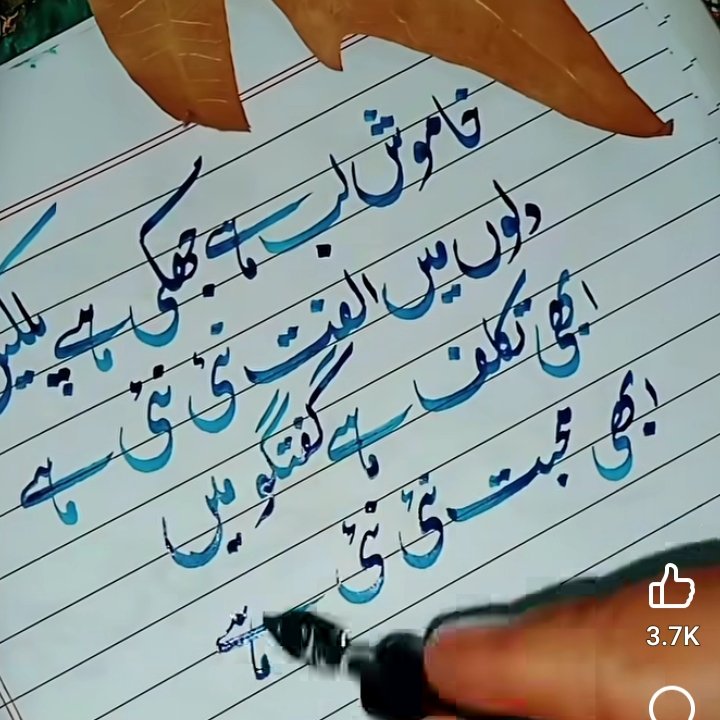 خاموش لب ہے جھکی ہے پلکیں
دلوں میں الفت نئی نئی ہے
ابھی تکلف ہے گفتگو میں
ابھی محبت نئی نئی ہے
3.7K